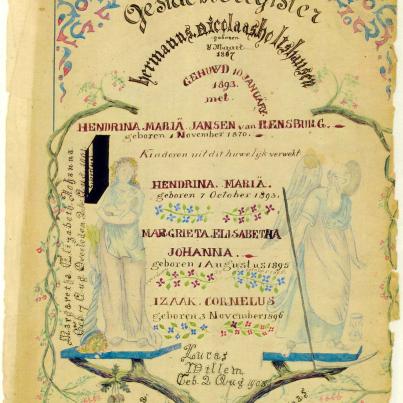 Geslachtregister
hermanus.nicolaas.holtshausen
geboren
8 Maart
1867
GEHUWD 10 JANUARY.
1893.
met.
HENDRINA.MARIÄ JANSEN van RENSBURG.
geboren 1 November 1870.
Kinderen uit dit huwelyk verwekt
HENDRINA. MARIÄ.
geboren 7 October 1893.
MARGRIETA.ELISABETHA
JOHANNA.
geboren 1 Augustus 1895
IZAAK. CORNELUS
geboren 3 November 1896
Margaretha Elizabeth Johanna
Geb 7 Aug Overleden 2 Aug 1901
Lucas
Willem
Geb. 2 Aug 1903